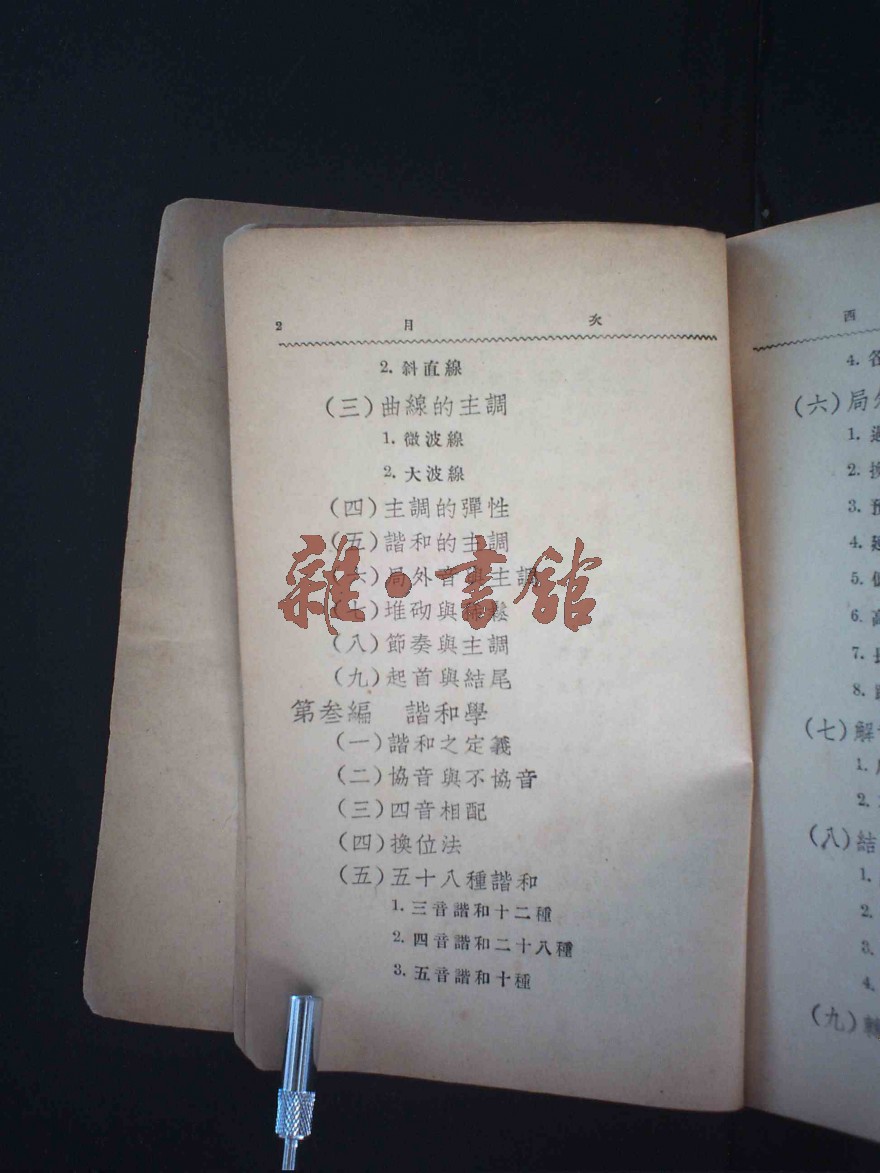 2 目 次
2. 斜直線
(三)曲線的主調
1. 微波線
2. 大波線
(四)主調的彈性
(五)諧和的主調
(六)局外音與主調
(七)堆砌與鬆
(八)節奏與主調
(九)起首與結尾
第叁編 諧和學
(一)諧和之定義
(二)協音與不協音
(三)四音相配
(四)換位法
(五)五十八種諧和
1. 三音諧和十二種
2. 四音諧和二十八種
3. 五音諧和十種
雜·書館
西
4.
(六)局
1.
2. 換
3. 預
4.
5.
6. 高
7. 長
8.
(七)解
1.
2.
(八)結
1.
2.
3.
4.
(九)轉